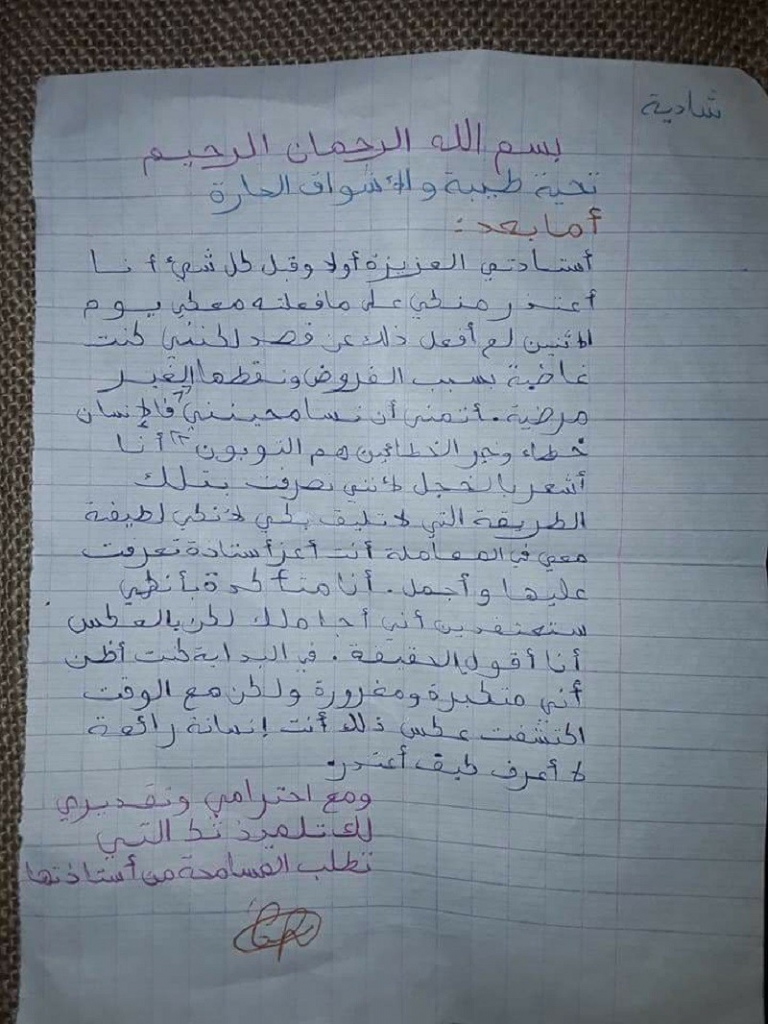 شادية
بسم الله الرحمان الرحيم
تحية طيبة والأشواق الحارة
أما بعد :
أستادتي العزيزة أولا وقبل كل شيئ أنا
أعتذر منكي على مافعلته معكي يوم
الاثنين لم أفعل ذلك عن قصد لكنني كنت
غاضبة بسبب الفروض ونقطها الغير
مرضية. أتمنى أن تسامحينني "فالإنسان
خطاء وخير الخطائين هم التوبون" أنا
أشعر بالخجل لأنني تصرفت بتلك
الطريقة التي لاتليق بكي لأنكي لطيفة
معي في المعاملة أنت أعز أستادة تعرفت
عليها وأجمل. أنا متأكدة بأنكي
ستعتقدين أني أجاملك لكن بالعكس
أنا أقول الحقيقة. في البداية كنت أظن
أني متكبرة ومغرورة ولكن مع الوقت
اكتشفت عكس ذلك أنت إنسانة رائعة
لا أعرف كيف أعتدر.
ومع احترامي وتقديري
لك تلميذتك التي
تطلب المسامحة من أستاذتها